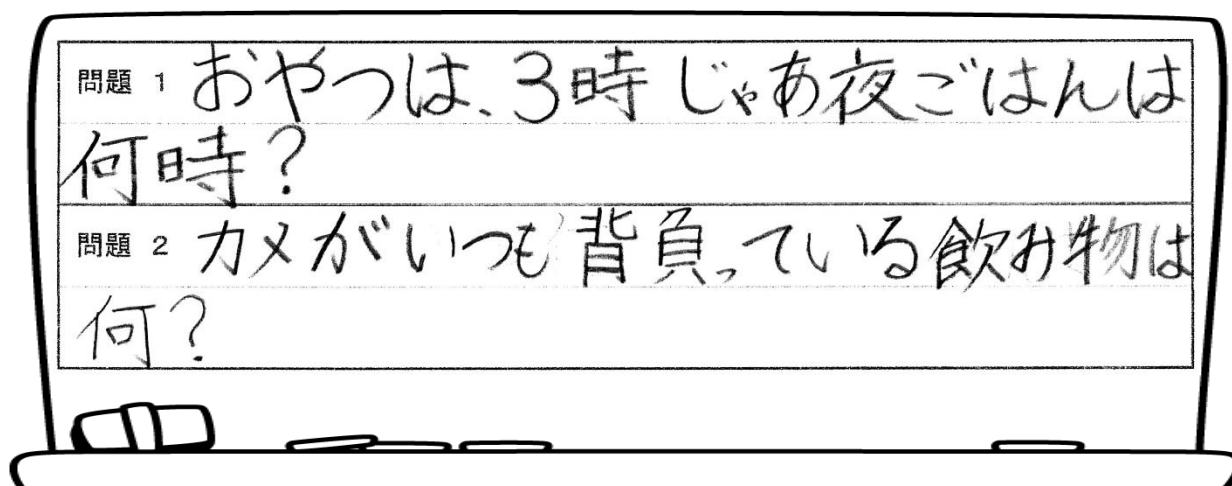 問題 1 おやつは、3時じゃあ夜ごはんは
何時?
問題 2 カメがいつも背負っている飲み物は
何?